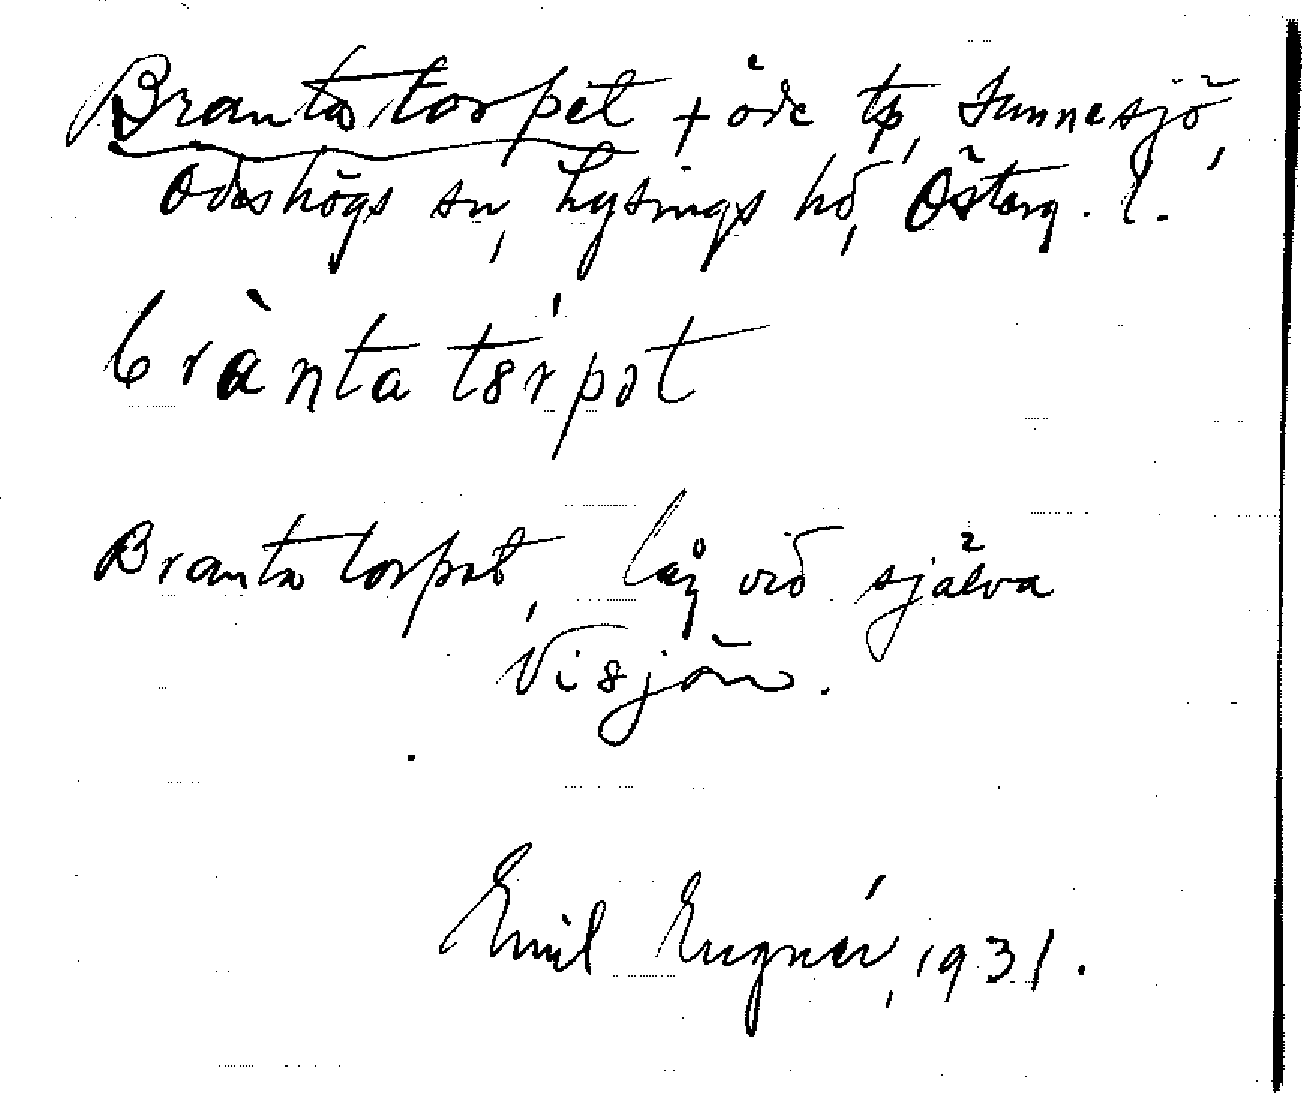 Brantatorpet + öde tp, Sunnesjö,
Ödeshögs sn, Lysings hd, Österg. l.
bràntatórpət
Brantatorpet, låg vid själva
Visjön.
Emil 1931.